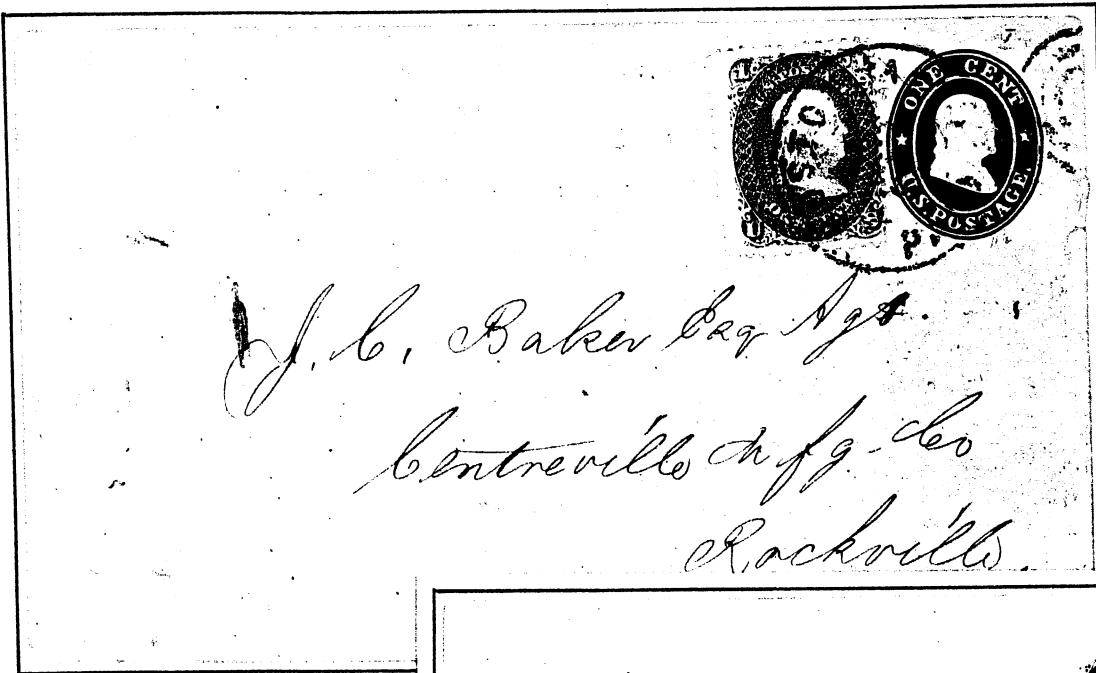 ONE CENT
U.S. POSTAGE
J. C. Baker Esq Agt.
Centreville Mfg. Co
Rockville.